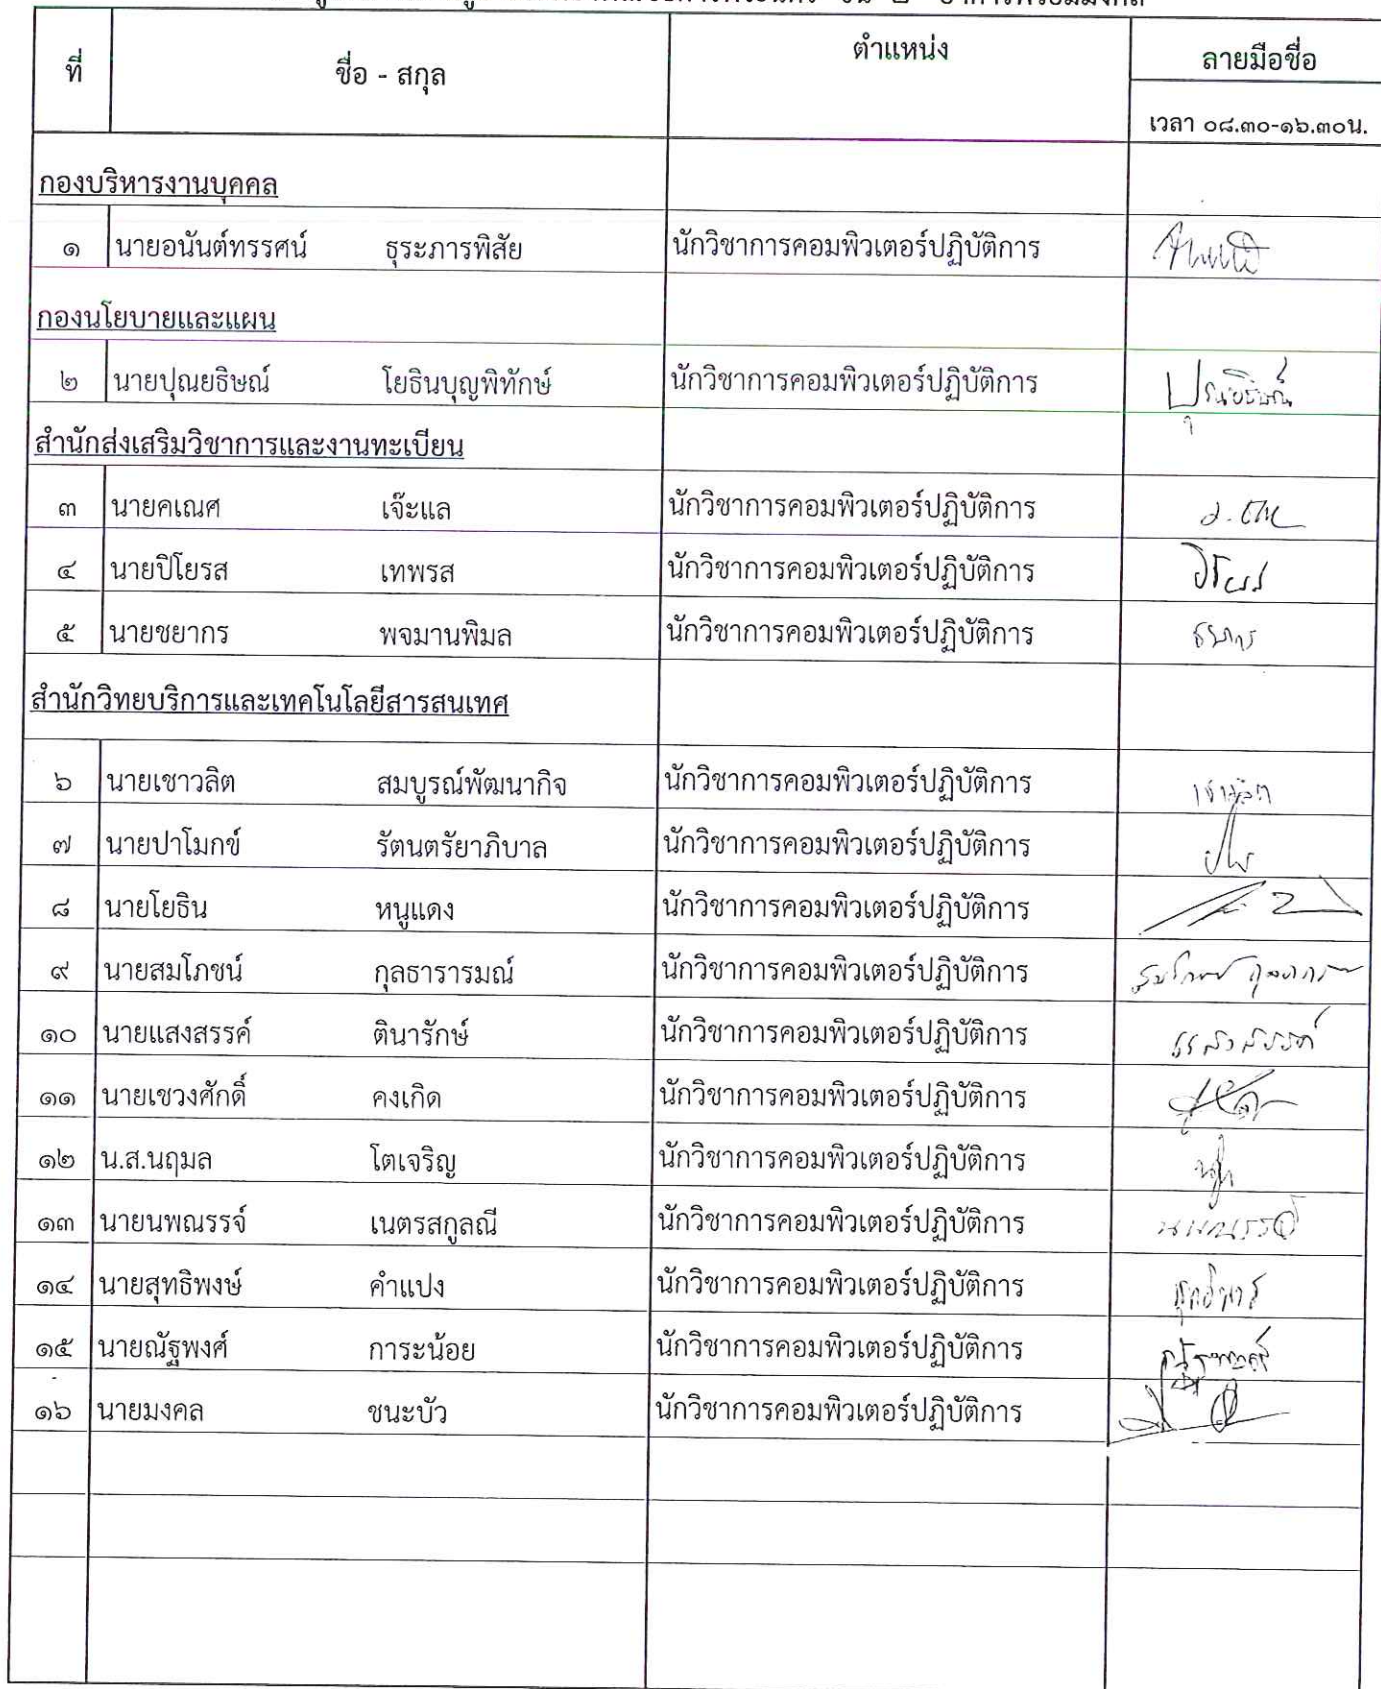 ที่ ชื่อ - สกุล ตำแหน่ง ลายมือชื่อ
เวลา ๐๘.๓๐-๑๖.๓๐น.
กองบริหารงานบุคคล
๑ นายอนันต์ทรรศน์ ธุระภารพิสัย นักวิชาการคอมพิวเตอร์ปฏิบัติการ
กองนโยบายและแผน
๒ นายปุณยธิษณ์ โยธินบุญพิทักษ์ นักวิชาการคอมพิวเตอร์ปฏิบัติการ ปุณยธิษณ์
สำนักส่งเสริมวิชาการและงานทะเบียน
๓ นายคเณศ เจ๊ะแล นักวิชาการคอมพิวเตอร์ปฏิบัติการ
๔ นายปิโยรส เทพรส นักวิชาการคอมพิวเตอร์ปฏิบัติการ ปิโยรส
๕ นายชยากร พจมานพิมล นักวิชาการคอมพิวเตอร์ปฏิบัติการ ชยากร
สำนักวิทยบริการและเทคโนโลยีสารสนเทศ
๖ นายเชาวลิต สมบูรณ์พัฒนากิจ นักวิชาการคอมพิวเตอร์ปฏิบัติการ เชาวลิต
๗ นายปาโมกข์ รัตนตรัยาภิบาล นักวิชาการคอมพิวเตอร์ปฏิบัติการ
๘ นายโยธิน หนูแดง นักวิชาการคอมพิวเตอร์ปฏิบัติการ
๙ นายสมโภชน์ กุลธารารมณ์ นักวิชาการคอมพิวเตอร์ปฏิบัติการ
๑๐ นายแสงสรรค์ ตินารักษ์ นักวิชาการคอมพิวเตอร์ปฏิบัติการ แสงสรรค์
๑๑ นายเชวงศักดิ์ คงเกิด นักวิชาการคอมพิวเตอร์ปฏิบัติการ
๑๒ น.ส.นฤมล โตเจริญ นักวิชาการคอมพิวเตอร์ปฏิบัติการ
๑๓ นายนพณรรจ์ เนตรสกูลณี นักวิชาการคอมพิวเตอร์ปฏิบัติการ นพณรรจ์
๑๔ นายสุทธิพงษ์ คำแปง นักวิชาการคอมพิวเตอร์ปฏิบัติการ
๑๕ นายณัฐพงศ์ การะน้อย นักวิชาการคอมพิวเตอร์ปฏิบัติการ ณัฐพงศ์
๑๖ นายมงคล ชนะบัว นักวิชาการคอมพิวเตอร์ปฏิบัติการ